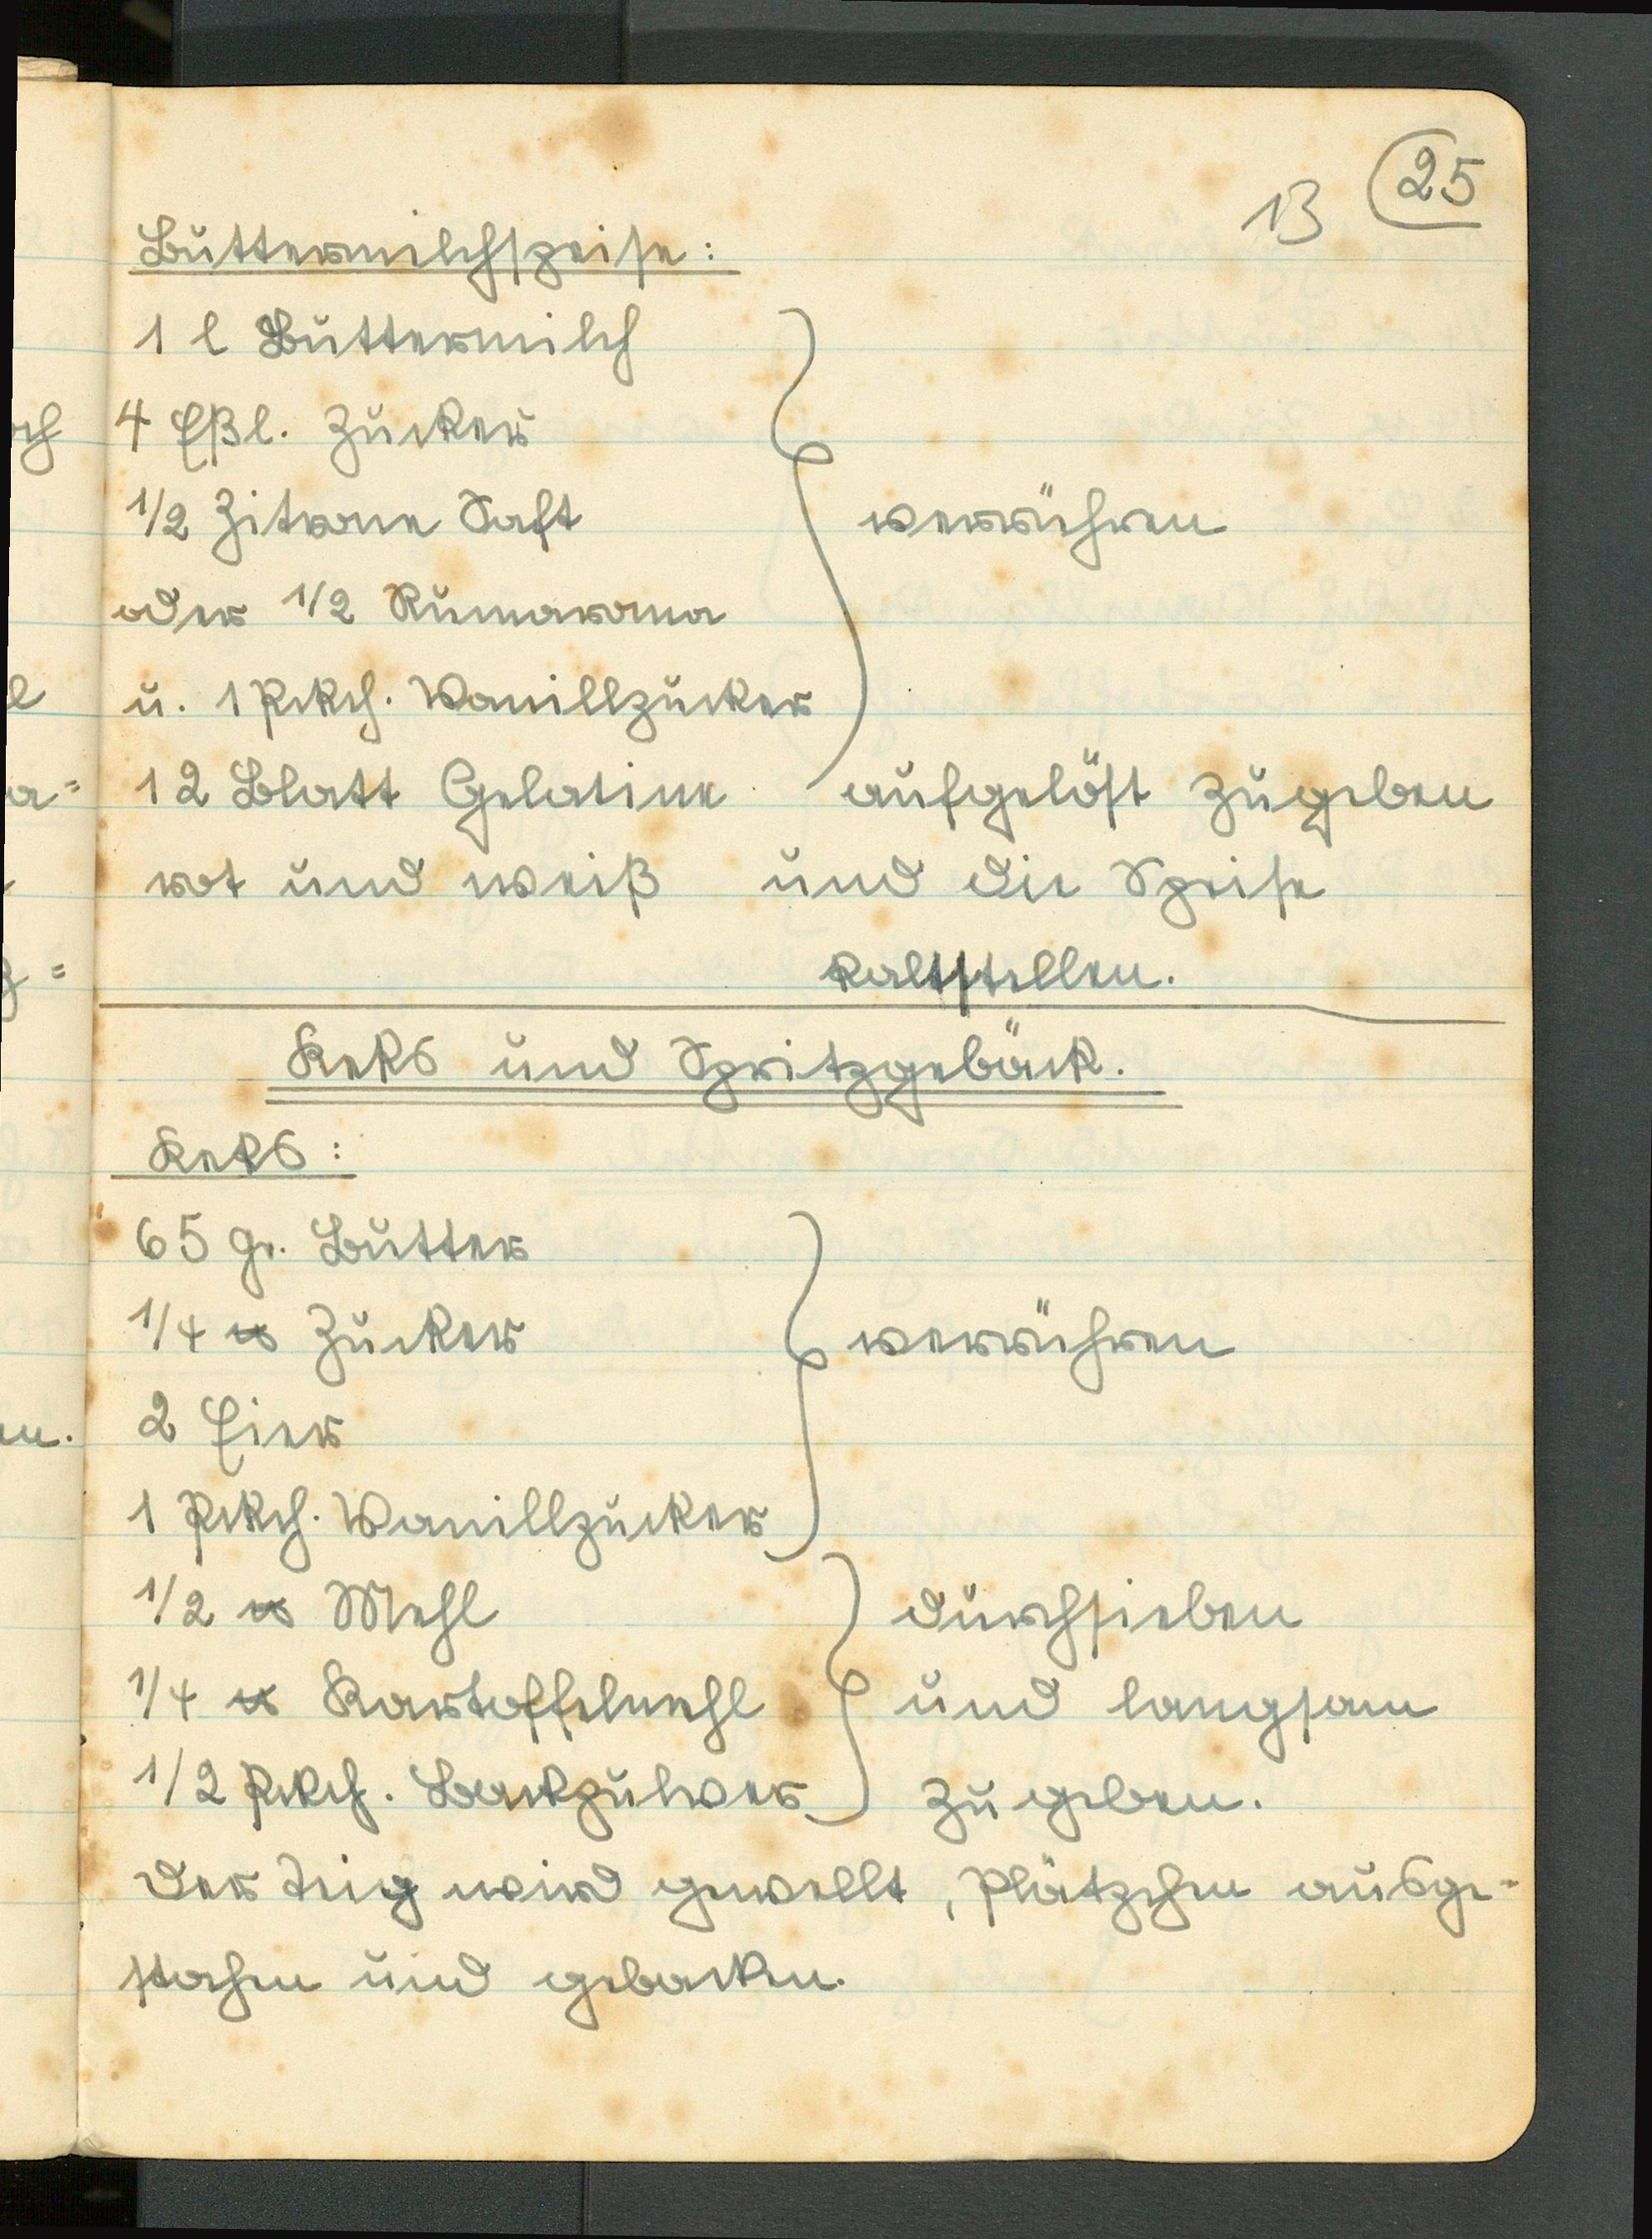 13 25
Buttermilchspeise:
1 l Buttermilch
4 Eßl. Zucker
1/2 Zitrone Saft verrühren
oder 1/2 Rumaroma
u. 1 Pckch. Vanillzucker
12 Blatt Gelatine aufgelöst zugeben
rot und weiß und die Speise
kaltstellen.
Keks und Spritzgebäck.
Keks:
65 gr. Butter
1/4 ℔ Zucker verrühren
2 Eier
1 Pckch. Vanillzucker
1/2 ℔ Mehl durchsieben
1/4 ℔ Kartoffelmehl und langsam
1/2 Pckch. Backpulver zugeben.
Der Teig wird gewellt, Plätzchen ausge-
stochen und gebacken.